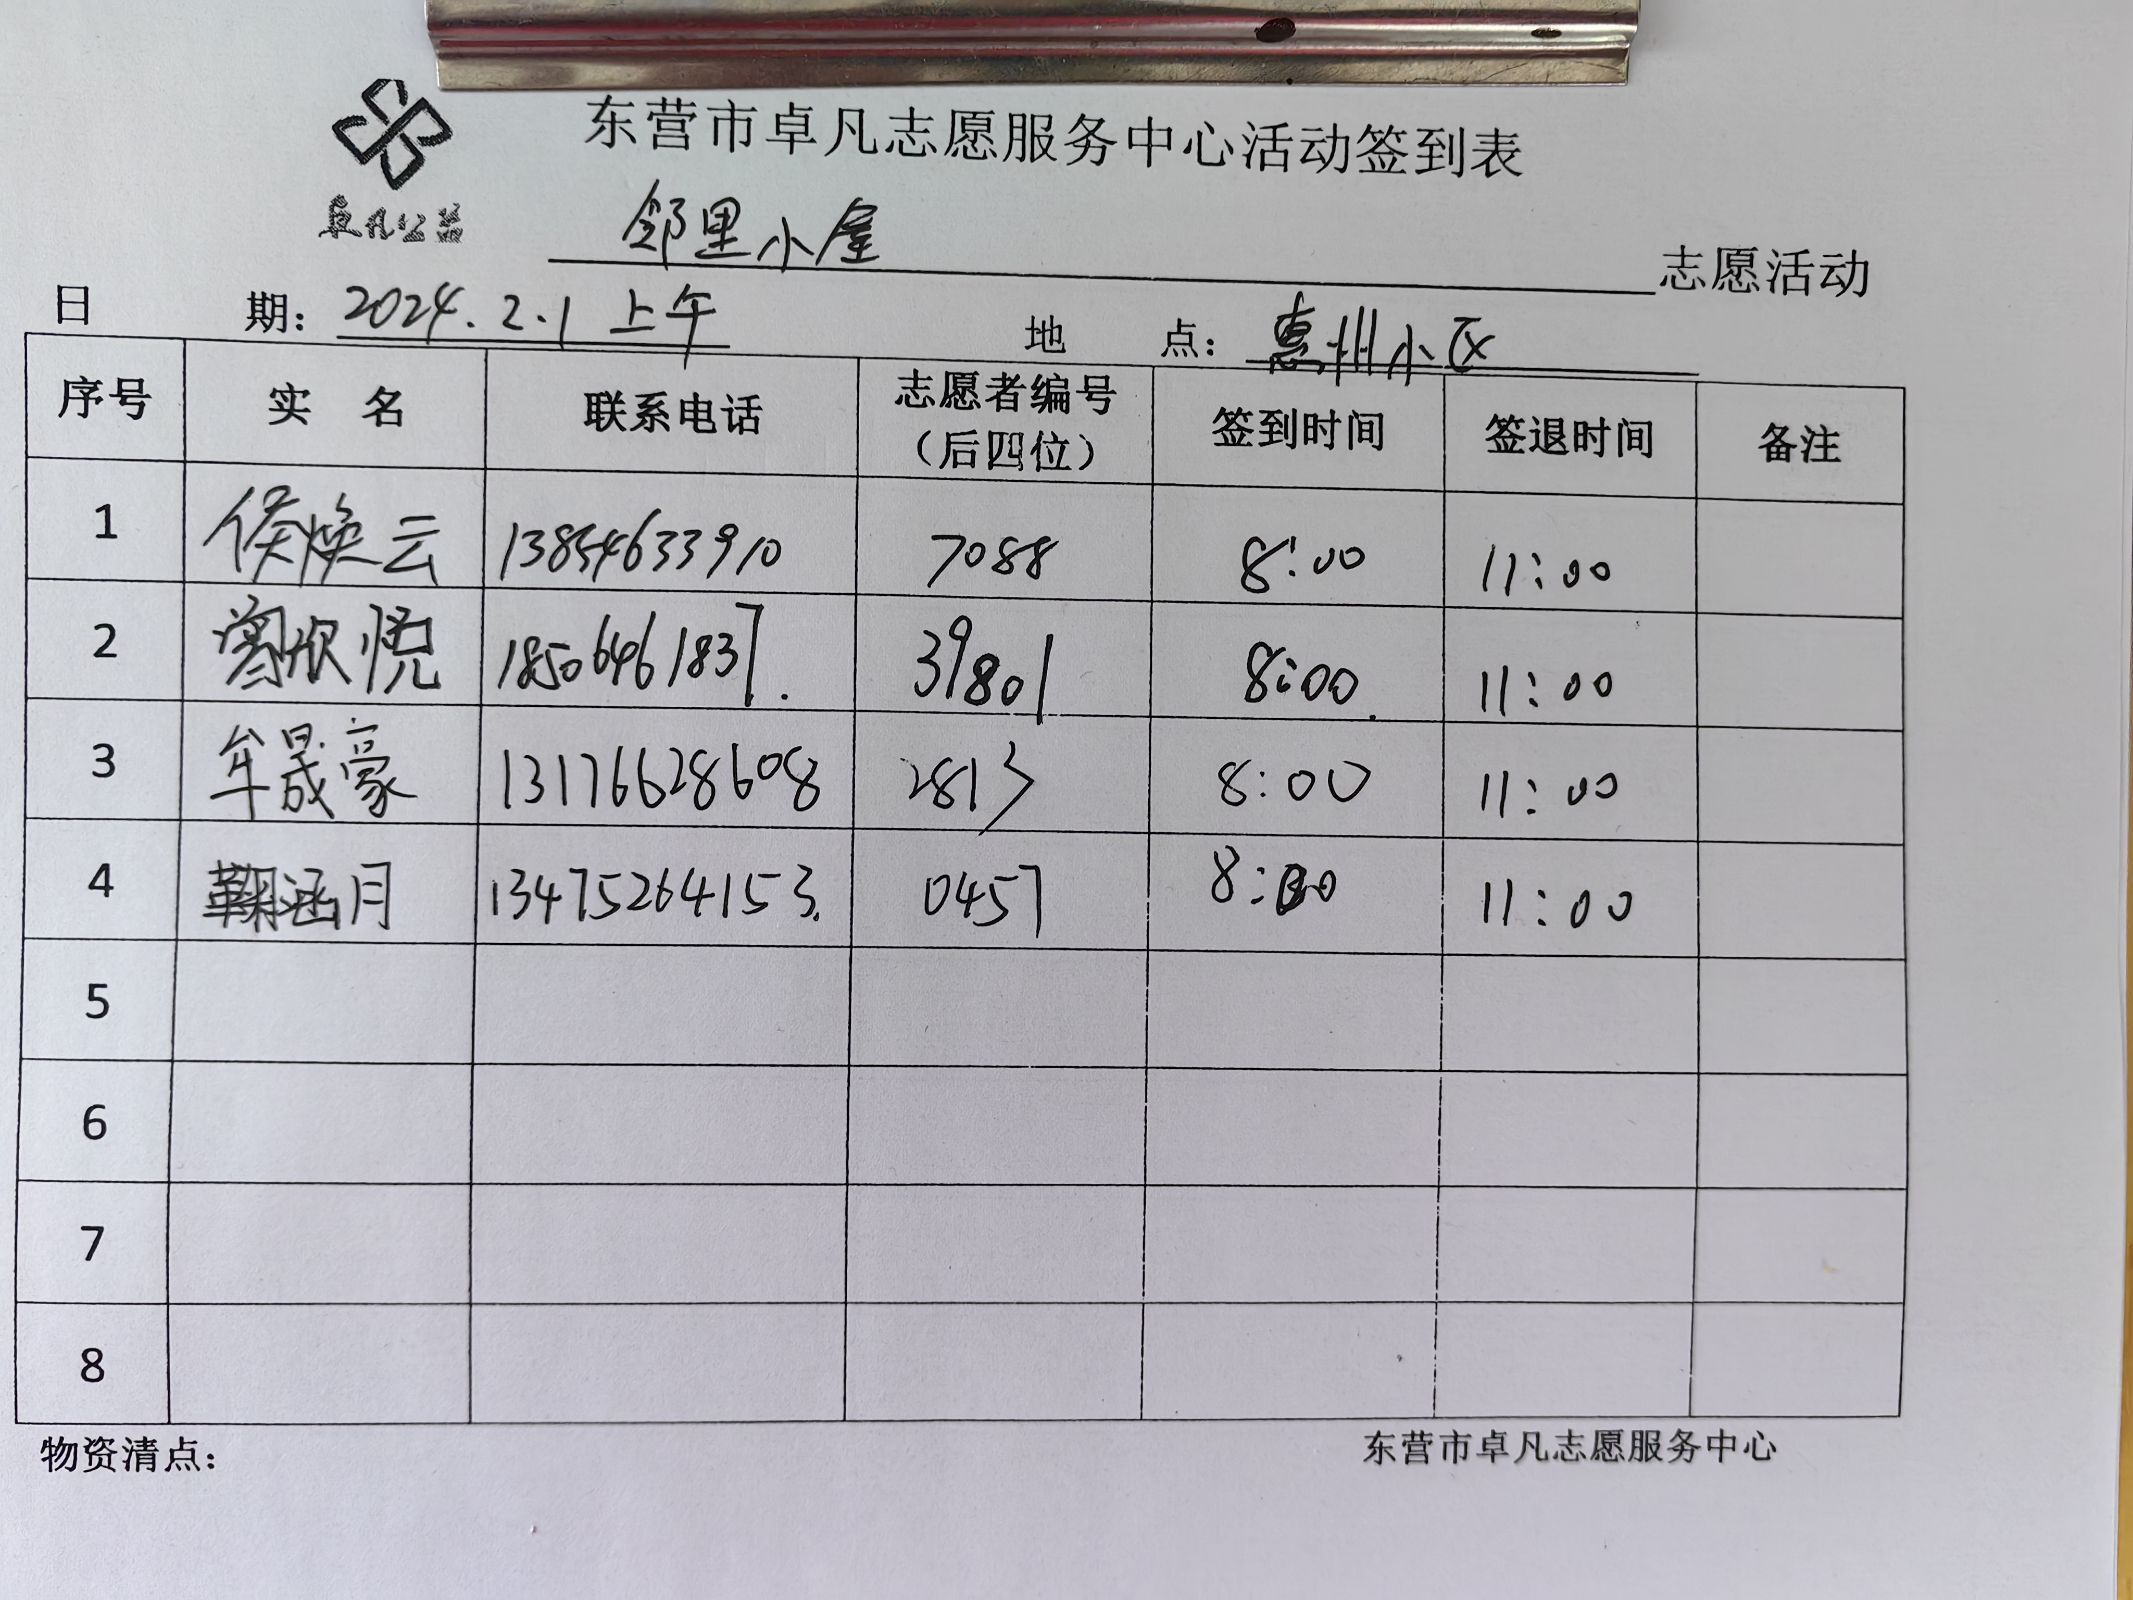 东营市卓凡志愿服务中心活动签到表
卓凡公益
邻里小屋 志愿活动
日 期：2024.2.1 上午 地 点：惠州小区
序号 实 名 联系电话 志愿者编号（后四位） 签到时间 签退时间 备注
1 侯焕云 13854633910 7088 8:00 11:00
2 欣悦 18506461837. 39801 8:00. 11:00
3 牟晟豪 13176628608 2813 8:00 11:00
4 鞠涵月 13475264153. 0457 8:00 11:00
5
6
7
8
物资清点： 东营市卓凡志愿服务中心